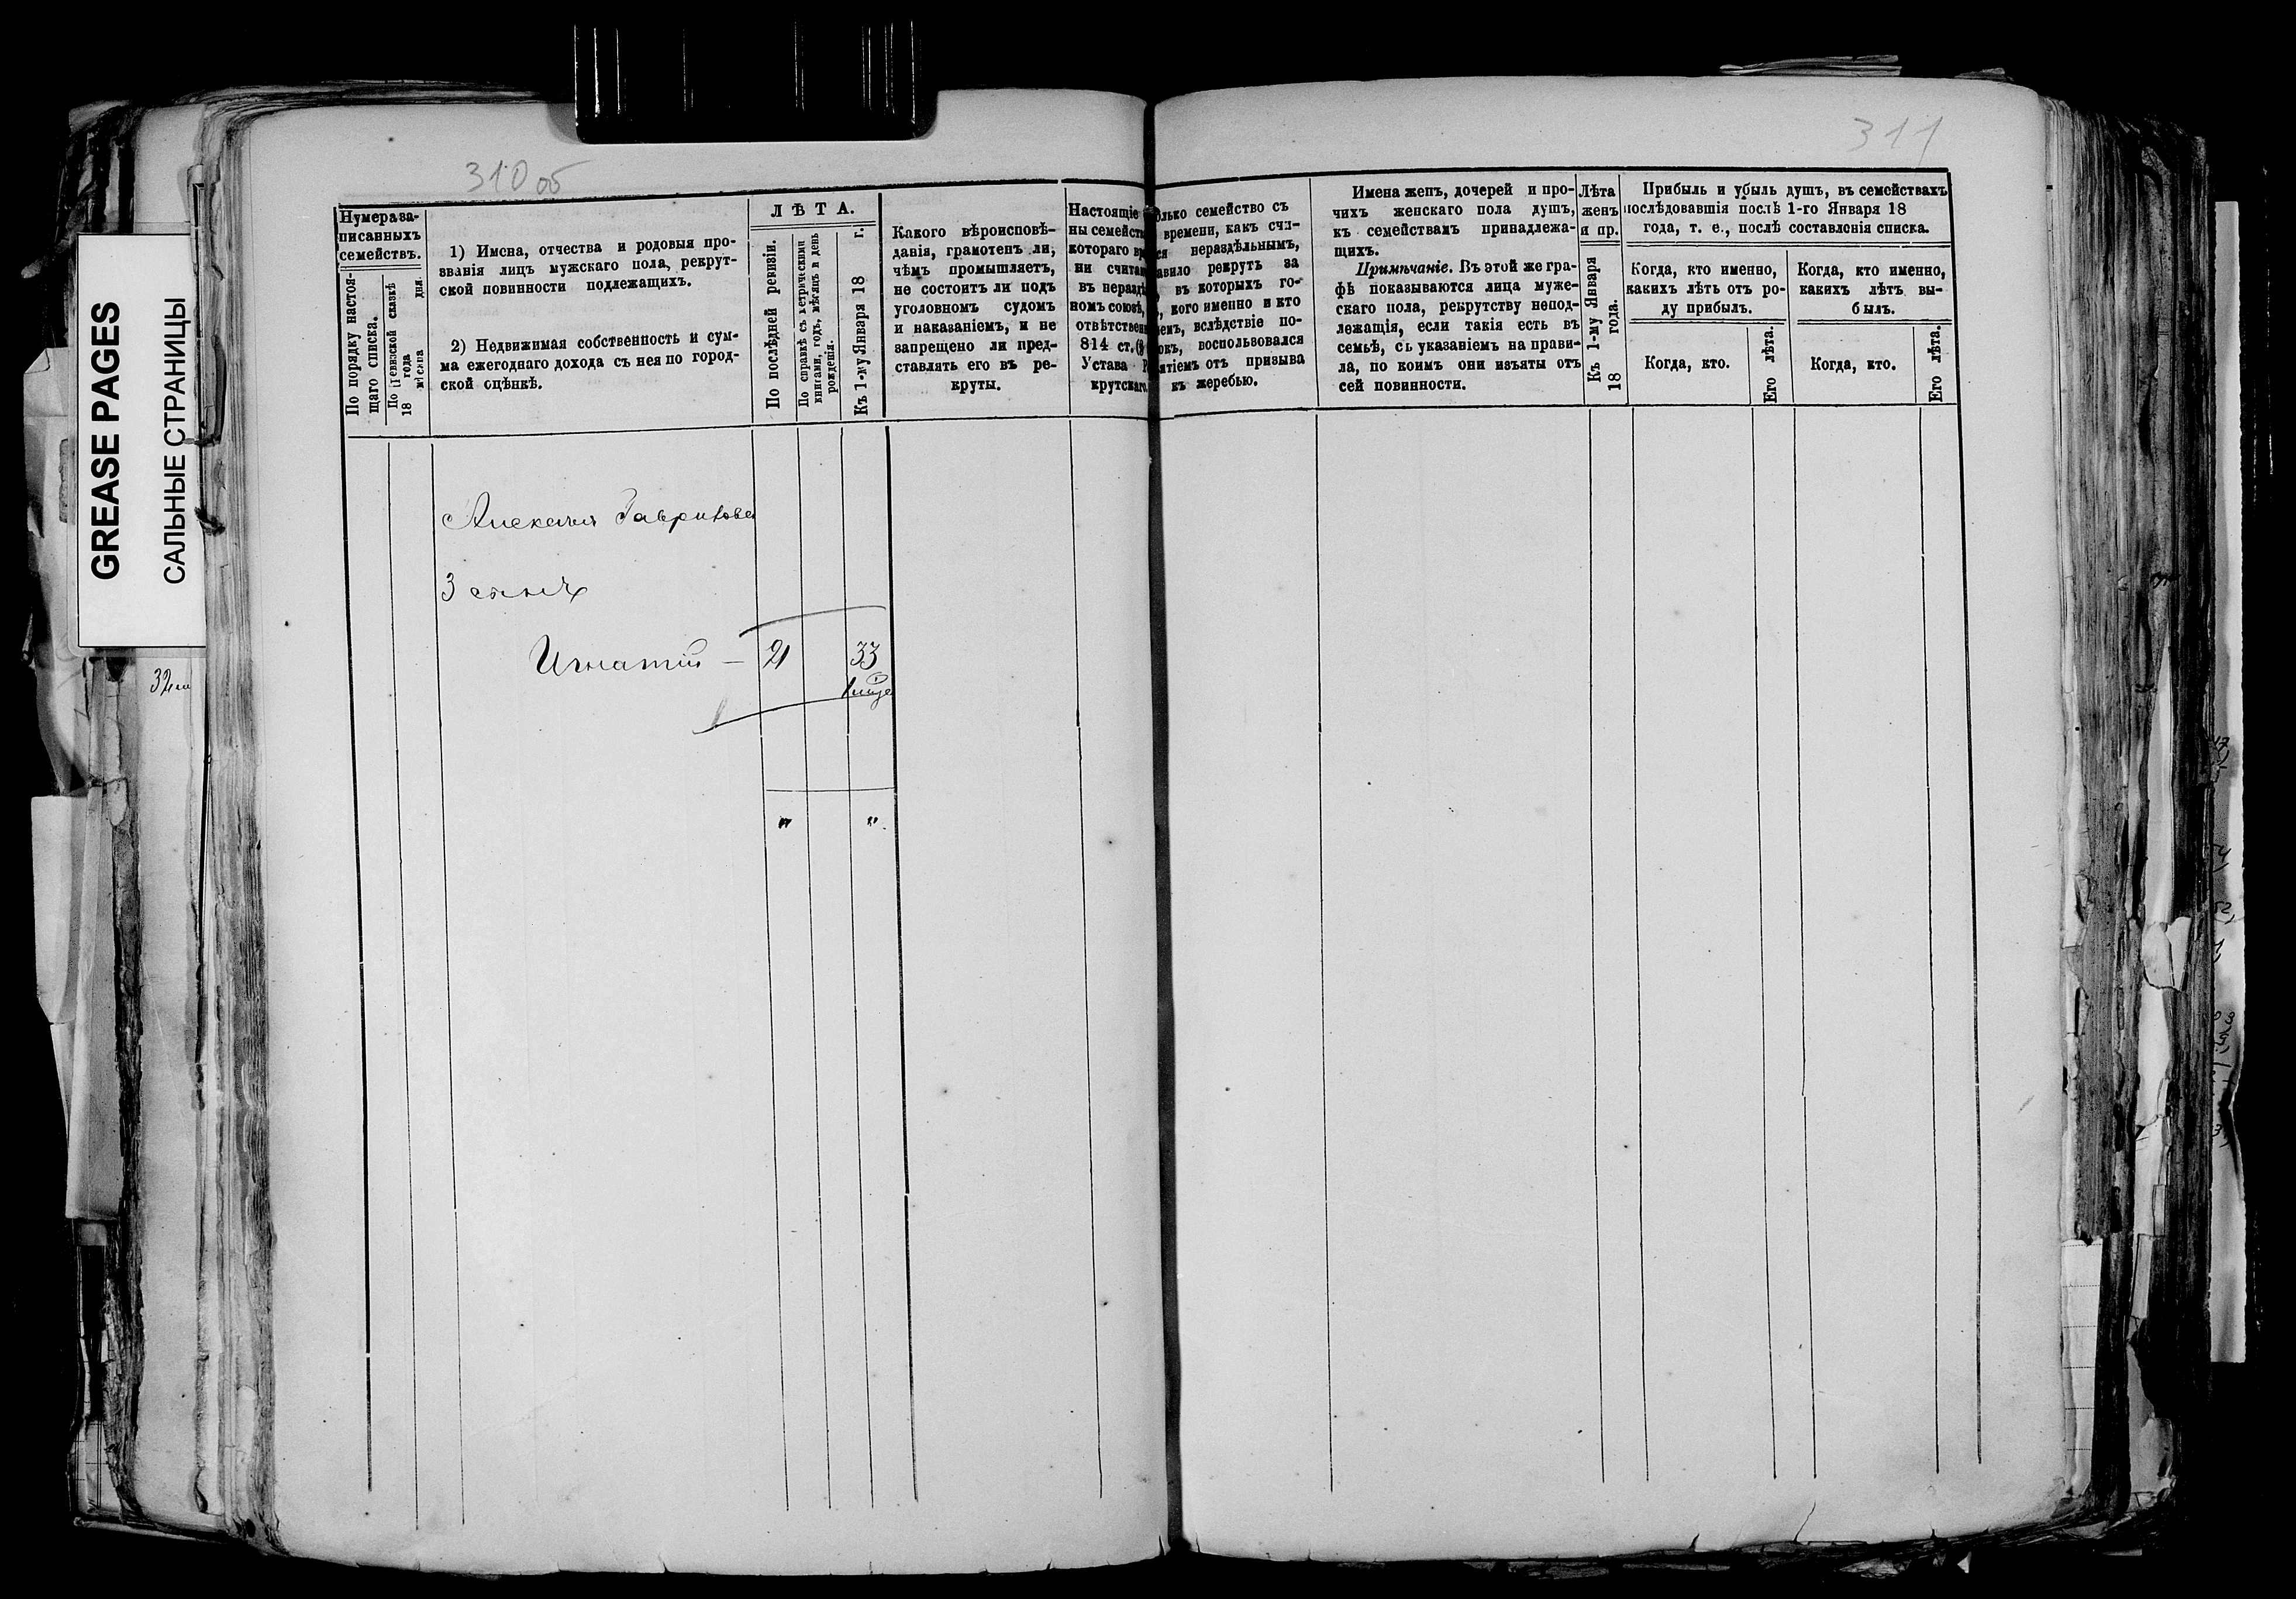 GREASE PAGES
САЛЬНЫЕ СТРАНИЦЫ
310 об
Нумера за-
писанныхъ
семействъ.
По порядку настоя-
щаго списка.
По ревизской сказкѣ
18 года
мѣсяца дня
1) Имена, отчества и родовыя про-
званія лицъ мужскаго пола, рекрут-
ской повинности подлежащихъ.
2) Недвижимая собственность и сум-
ма ежегоднаго дохода съ нея по город-
ской оцѣнкѣ.
ЛѢТА.
По послѣдней ревизіи.
По справкѣ съ метрическими
книгами, годъ, мѣсяцъ и день
рожденія.
Къ 1-му Января 18 г.
Какого вѣроисповѣ-
данія, грамотенъ ли,
чѣмъ промышляетъ,
не состоитъ ли подъ
уголовномъ судомъ
и наказаніемъ, и не
запрещено ли пред-
ставлять его въ ре-
круты.
Настоящіе
ны семейств
котораго вр
ни считае
въ неразд
номъ союзѣ,
отвѣтствен
814 ст.
Устава Р
крутскаго
Алексея Гаврилова
3 сынъ
Игнатій — 21 33
" "
311
олько семейство съ
времени, какъ счи-
ся нераздѣльнымъ,
авило рекрутъ за
въ которыхъ го-
, кого именно и кто
емъ, вслѣдствіе по-
окъ, воспользовался
ятіемъ отъ призыва
къ жеребью.
Имена женъ, дочерей и про-
чихъ женскаго пола душъ,
къ семействамъ принадлежа-
щихъ.
Примѣчаніе. Въ этой же гра-
фѣ показываются лица муже-
скаго пола, рекрутству непод-
лежащія, если такія есть въ
семьѣ, съ указаніемъ на прави-
ла, по коимъ они изъяты отъ
сей повинности.
Лѣта
женъ
и пр.
Къ 1-му Января
18 года.
Прибыль и убыль душъ, въ семействахъ
послѣдовавшія послѣ 1-го Января 18
года, т. е., послѣ составленія списка.
Когда, кто именно,
какихъ лѣтъ отъ ро-
ду прибылъ.
Когда, кто.
Его лѣта.
Когда, кто именно,
какихъ лѣтъ вы-
былъ.
Когда, кто.
Его лѣта.